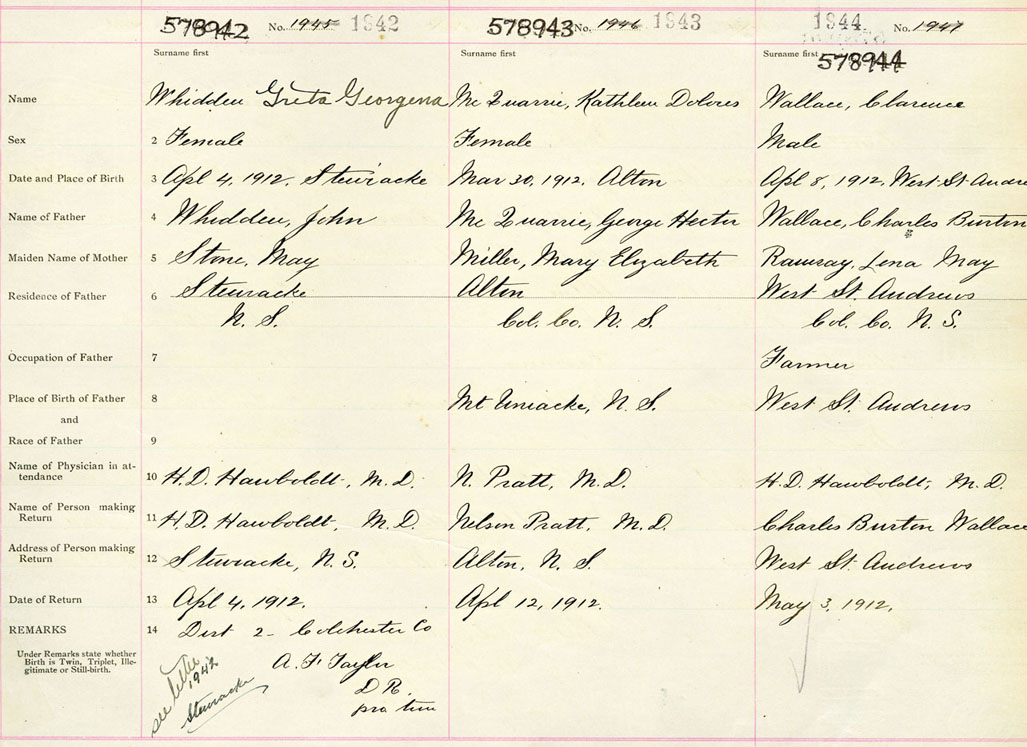 578942 No. 1945 1842 578943 No. 1946 1843 1844 No. 1947
Surname first Surname first Surname first 578944
Name Whidden Greta Georgena Mc Quarrie, Kathleen Dolores Wallace, Clarence
Sex 2 Female Female Male
Date and Place of Birth 3 Apl 4, 1912, Stewiacke Mar 30, 1912. Alton Apl 8, 1912, West St Andre
Name of Father 4 Whidden, John Mc Quarrie, George Hector Wallace, Charles Burton
Maiden Name of Mother 5 Stone, May Miller, Mary Elizabeth Ramsay, Lena May
Residence of Father 6 Stewiacke Alton West St. Andrews
N. S. Col. Co. N. S. Col. Co. N. S.
Occupation of Father 7 Farmer
Place of Birth of Father 8 Mt Uniacke, N. S. West St. Andrews
and
Race of Father 9
Name of Physician in at-
tendance 10 H. D. Hawboldt, M. D. N. Pratt, M. D. H. D. Hawboldt, M. D.
Name of Person making
Return 11 H. D. Hawboldt, M. D. Nelson Pratt, M. D. Charles Burton Wallace
Address of Person making
Return 12 Stewiacke, N. S. Alton, N. S. West St. Andrews
Date of Return 13 Apl 4, 1912. Apl 12, 1912. May 3, 1912.
REMARKS 14 Dist 2 - Colchester Co
Under Remarks state whether
Birth is Twin, Triplet, Ille-
gitimate or Still-birth.
A. F. Taylor
D R.
pro tem
see letter
1942
Stewiacke